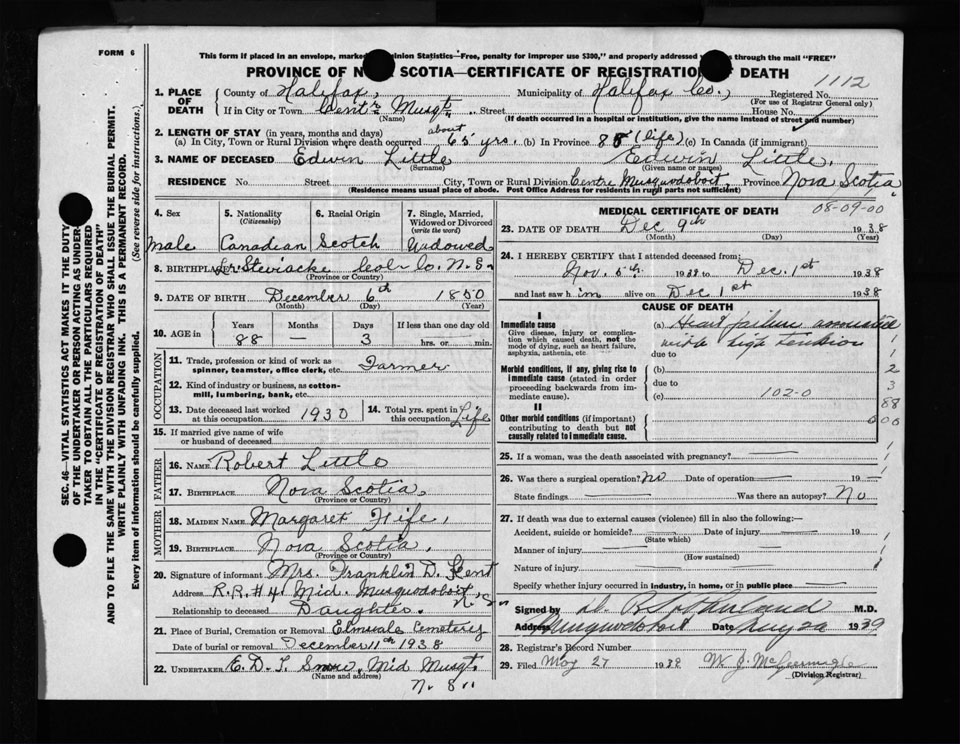 FORM 6
This form if placed in an envelope, marked nion Statistics—Free, penalty for improper use $300," and properly addressed through the mail "FREE"
PROVINCE OF N SCOTIA—CERTIFICATE OF REGISTRATION F DEATH
1112
1. PLACE OF DEATH
County of Halifax, Municipality of Halifax Co., Registered No.
(For use of Registrar General only)
If in City or Town Centre Musqt. Street House No.
(Name) (If death occurred in a hospital or institution, give the name instead of street and number)
2. LENGTH OF STAY (in years, months and days)
(a) In City, Town or Rural Division where death occurred about 65 yrs. (b) In Province 88 (life) (c) In Canada (if immigrant)
3. NAME OF DECEASED Edwin Little Edwin Little.
(Surname) (Given name or names)
RESIDENCE No. Street City, Town or Rural Division Centre Musquodoboit, Province Nova Scotia
(Residence means usual place of abode. Post Office Address for residents in rural parts not sufficient)
4. Sex 5. Nationality 6. Racial Origin 7. Single, Married, Widowed or Divorced
(Citizenship) (write the word)
Male Canadian Scotch Widowed
8. BIRTHPLACE Stewiacke Col. Co. N.S.
(Province or Country)
9. DATE OF BIRTH December 6th 1850
(Month) (Day) (Year)
10. AGE in Years Months Days If less than one day old
88 — 3 hrs. or min.
OCCUPATION
11. Trade, profession or kind of work as spinner, teamster, office clerk, etc. Farmer
12. Kind of industry or business, as cotton-mill, lumbering, bank, etc.
13. Date deceased last worked at this occupation 1930 14. Total yrs. spent in this occupation Life
15. If married give name of wife or husband of deceased
FATHER
16. NAME Robert Little
17. BIRTHPLACE Nova Scotia.
(Province or Country)
MOTHER
18. MAIDEN NAME Margaret Fife,
19. BIRTHPLACE Nova Scotia,
(Province or Country)
20. Signature of informant Mrs. Franklin D. Kent
Address R.R.#4 Mid. Musquodoboit N.S.
Relationship to deceased Daughter.
21. Place of Burial, Cremation or Removal Elmvale Cemetery
Date of burial or removal December 11th 1938
22. UNDERTAKER Mid Musqt.
(Name and address)
N.S.
MEDICAL CERTIFICATE OF DEATH
08-09-00
23. DATE OF DEATH Dec 9th 1938
(Month) (Day) (Year)
24. I HEREBY CERTIFY that I attended deceased from:
Nov. 5th 1938 to Dec. 1st 1938
and last saw him alive on Dec 1st 1938
CAUSE OF DEATH
I
Immediate cause
Give disease, injury or complication which caused death, not the mode of dying, such as heart failure, asphyxia, asthenia, etc.
(a) Heart failure associated
with high tension
due to
Morbid conditions, if any, giving rise to immediate cause (stated in order proceeding backwards from immediate cause).
(b)
due to
(c) 102-0
II
Other morbid conditions (if important) contributing to death but not causally related to immediate cause.
1
1
2
3
88
000
25. If a woman, was the death associated with pregnancy?
26. Was there a surgical operation? No Date of operation 19
State findings Was there an autopsy? No
27. If death was due to external causes (violence) fill in also the following:—
Accident, suicide or homicide? Date of injury 19
(State which)
Manner of injury
(How sustained)
Nature of injury
Specify whether injury occurred in industry, in home, or in public place
Signed by M.D.
Address Musquodoboit Date 1939
28. Registrar's Record Number
29. Filed May 27 1939
(Division Registrar)
SEC. 46—VITAL STATISTICS ACT MAKES IT THE DUTY
OF THE UNDERTAKER OR PERSON ACTING AS UNDER-
TAKER TO OBTAIN ALL THE PARTICULARS REQUIRED
IN THE "CERTIFICATE OF REGISTRATION OF DEATH"
AND TO FILE THE SAME WITH THE DIVISION REGISTRAR WHO SHALL ISSUE THE BURIAL PERMIT.
WRITE PLAINLY WITH UNFADING INK. THIS IS A PERMANENT RECORD.
Every item of information should be carefully supplied. (See reverse side for instructions.)